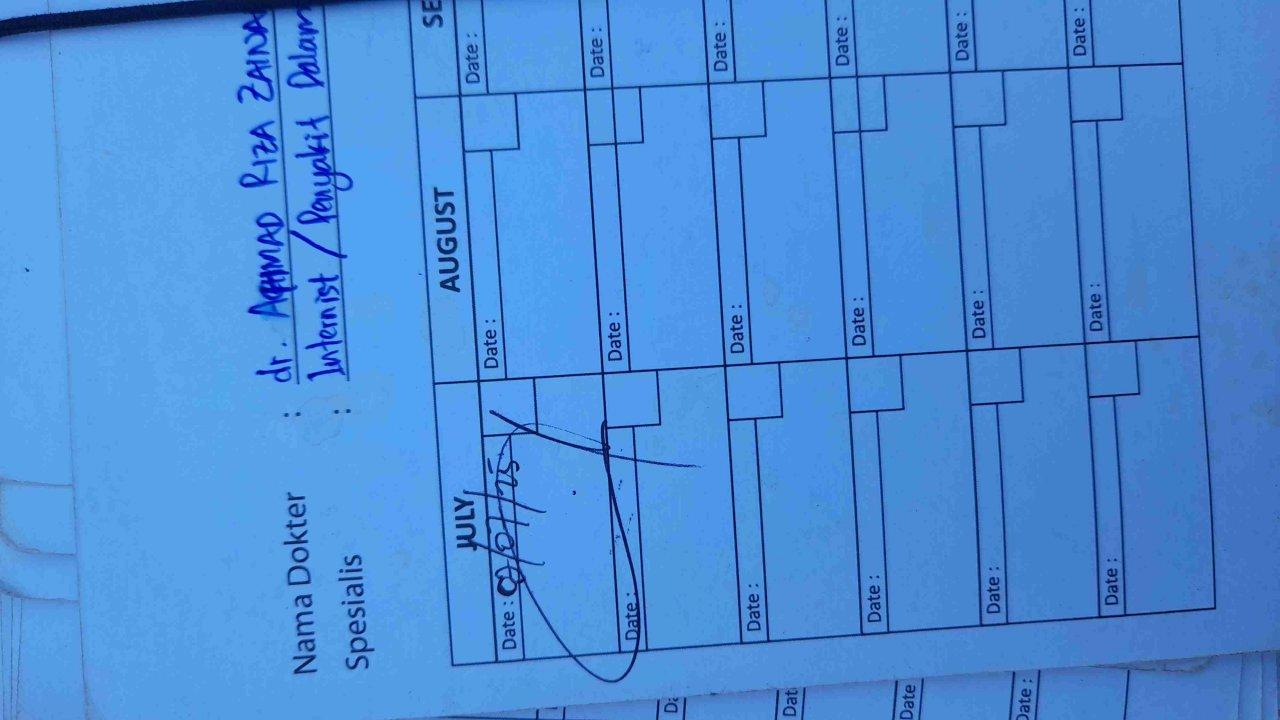 Nama Dokter : dr. AHMAD RIZA ZAINA
Spesialis : Internist / Penyakit Dalam
JULY AUGUST SE
Date : /07/25 Date : Date :
Date : Date : Date :
Date : Date : Date :
Date : Date : Date :
Date : Date : Date :
Date : Date : Date :